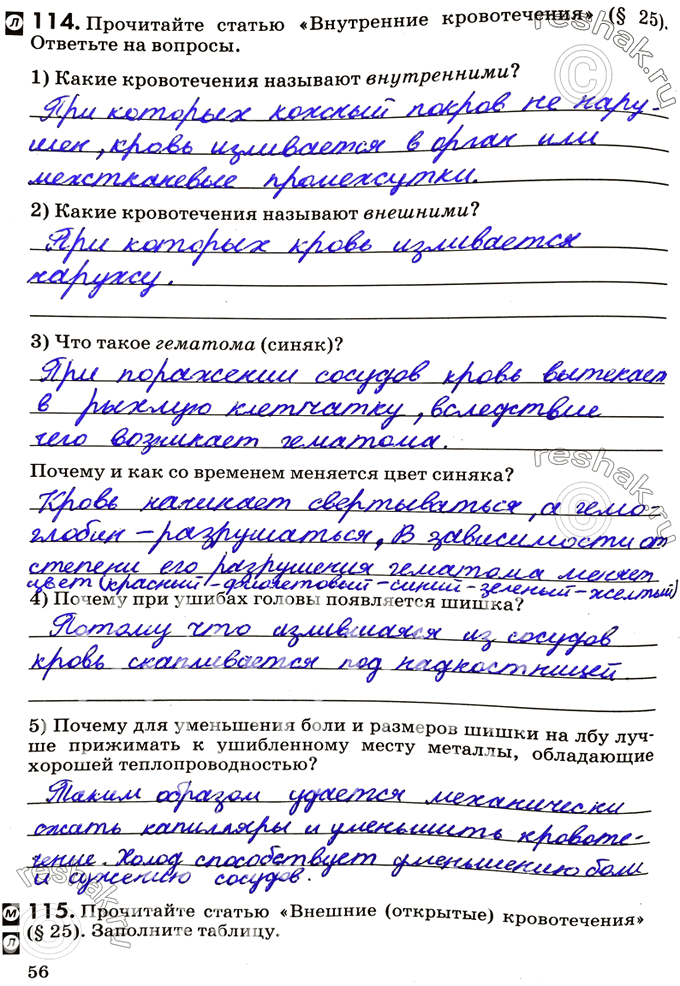 Л 114. Прочитайте статью «Внутренние кровотечения» (§ 25).
Ответьте на вопросы.
1) Какие кровотечения называют внутренними?
При которых кожный покров не нару-
шен, кровь изливается в орган или
межтканевые промежутки.
2) Какие кровотечения называют внешними?
При которых кровь изливается
наружу.
3) Что такое гематома (синяк)?
При поражении сосудов кровь вытекает
в рыхлую клетчатку, вследствие
чего возникает гематома.
Почему и как со временем меняется цвет синяка?
Кровь начинает свертываться, а гемо-
глобин - разрушаться, В зависимости от
степени его разрушения гематома меняет
цвет (красный - фиолетовый - синий - зеленый - желтый)
4) Почему при ушибах головы появляется шишка?
Потому что излившаяся из сосудов
кровь скапливается под надкостницей.
5) Почему для уменьшения боли и размеров шишки на лбу луч-
ше прижимать к ушибленному месту металлы, обладающие
хорошей теплопроводностью?
Таким образом удается механически
сжать капилляры и уменьшить кровоте-
чение. Холод способствует уменьшению боли
и сужению сосудов.
М 115. Прочитайте статью «Внешние (открытые) кровотечения»
Л (§ 25). Заполните таблицу.
56
reshak.ru
reshak.ru
reshak.ru
reshak.ru